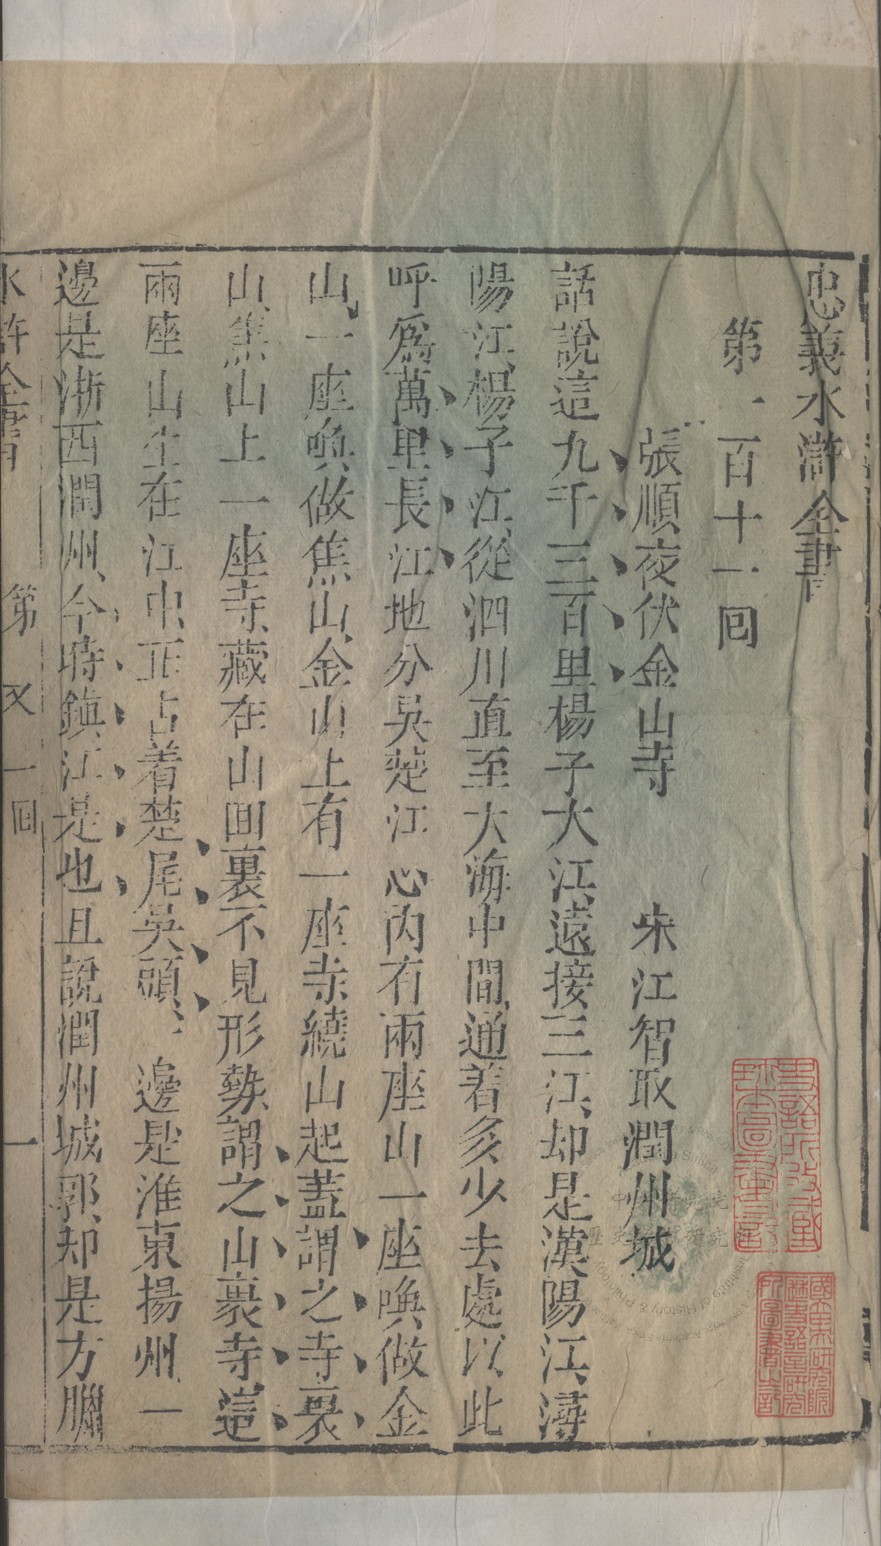 忠義水滸全書
第一百十一回
張順夜伏金山寺　宋江智取潤州城
話說這九千三百里楊子大江遠接三江却是漢陽江潯
陽江楊子江從泗川直至大海中間通着多少去處以此
呼爲萬里長江地分吳楚江心內有兩座山一座喚做金
山一座喚做焦山金山上有一座寺繞山起蓋謂之寺裏
山焦山上一座寺藏在山凹裏不見形勢謂之山裏寺這
兩座山生在江中正占着楚尾吳頭一邊是淮東揚州一
邊是浙西潤州今時鎮江是也且說潤州城郭却是方臘
水滸全書　第　一回　一
國立中央研究院歷史語言研究所圖書之記